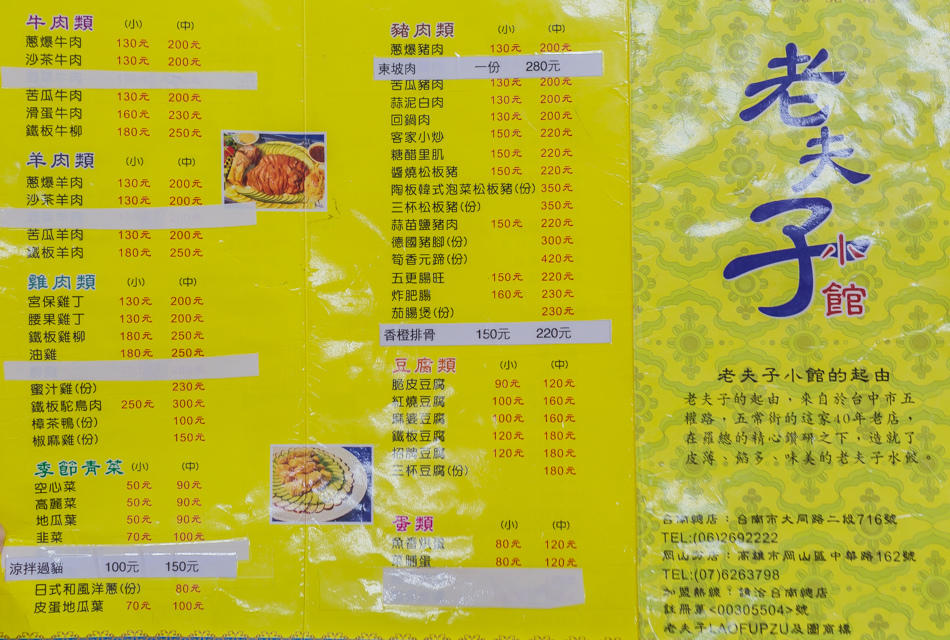 牛肉類 (小) (中)
蔥爆牛肉 130元 200元
沙茶牛肉 130元 200元
苦瓜牛肉 130元 200元
滑蛋牛肉 160元 230元
鐵板牛柳 180元 250元
羊肉類 (小) (中)
蔥爆羊肉 130元 200元
沙茶羊肉 130元 200元
苦瓜羊肉 130元 200元
鐵板羊肉 180元 250元
雞肉類 (小) (中)
宮保雞丁 130元 200元
腰果雞丁 130元 200元
鐵板雞柳 180元 250元
油雞 180元 250元
蜜汁雞(份) 230元
鐵板駝鳥肉 250元 300元
樟茶鴨(份) 100元
椒麻雞(份) 150元
季節青菜 (小) (中)
空心菜 50元 90元
高麗菜 50元 90元
地瓜葉 50元 90元
韭菜 70元 100元
涼拌過貓 100元 150元
日式和風洋蔥(份) 80元
皮蛋地瓜葉 70元 100元
豬肉類 (小) (中)
蔥爆豬肉 130元 200元
東坡肉 一份 280元
苦瓜豬肉 130元 200元
蒜泥白肉 130元 200元
回鍋肉 130元 200元
客家小炒 150元 220元
糖醋里肌 150元 220元
醬燒松板豬 150元 220元
陶板韓式泡菜松板豬(份) 350元
三杯松板豬(份) 350元
蒜苗鹽豬肉 150元 220元
德國豬腳(份) 300元
筍香元蹄(份) 420元
五更腸旺 150元 220元
炸肥腸 160元 230元
茄腸煲(份) 230元
香橙排骨 150元 220元
豆腐類 (小) (中)
脆皮豆腐 90元 120元
紅燒豆腐 100元 160元
麻婆豆腐 100元 160元
鐵板豆腐 120元 180元
招牌豆腐 120元 180元
三杯豆腐(份) 180元
蛋類 (小) (中)
80元 120元
脯蛋 80元 120元
老夫子小館
老夫子小館的起由
老夫子的起由，來自於台中市五
權路，五常街的這家40年老店，
在羅總的精心鑽研之下，造就了
皮薄、餡多、味美的老夫子水餃。
台南總店：台南市大同路二段716號
TEL:(06)2692222
岡山分店：高雄市岡山區中華路162號
TEL:(07)6263798
加盟熱線：請洽台南總店
註冊第<00305504>號
老夫子LAOFUPZU及圖商標